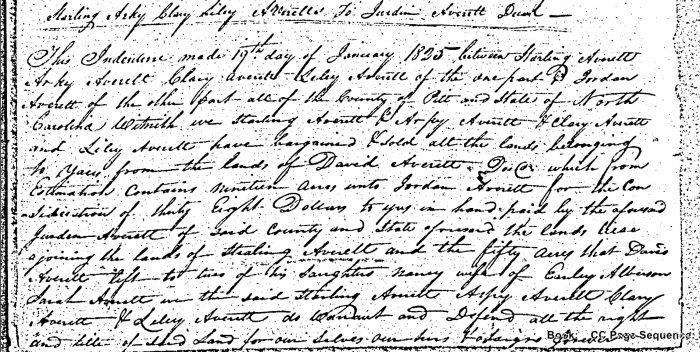 Starling Arky Clary Liley Averetts To Jurden Averett Deed
This Indenture made 19th day of January 1825 between Starling Averett
Arky Averett Clary Averett Liley Averett of the one part & Jordan
Averett of the other part all of the County of Pitt and State of North
Carolina Witnesth we Starling Averett & Arky Averett & Clary Averett
and Liley Averett have bargained & sold all the lands belonging
to from the lands of David Averett which from
Estimation Contains nineteen acres unto Jordan Averett for the Con
sideration of thirty Eight Dollars to in hand paid by the aforesaid
Jurden Averett of said County and State aforesaid the lands
ajoining the lands of Starling Averett and the fifty acres that David
Averett left to of his Daughters Nancy wife of Albison
Sarah Averett we the said Starling Averett Averett Clary
Averett & Liley Averett do warrant and Defend all the right
and title of said Land for our selves our hirs &
Book: CC Page Sequence